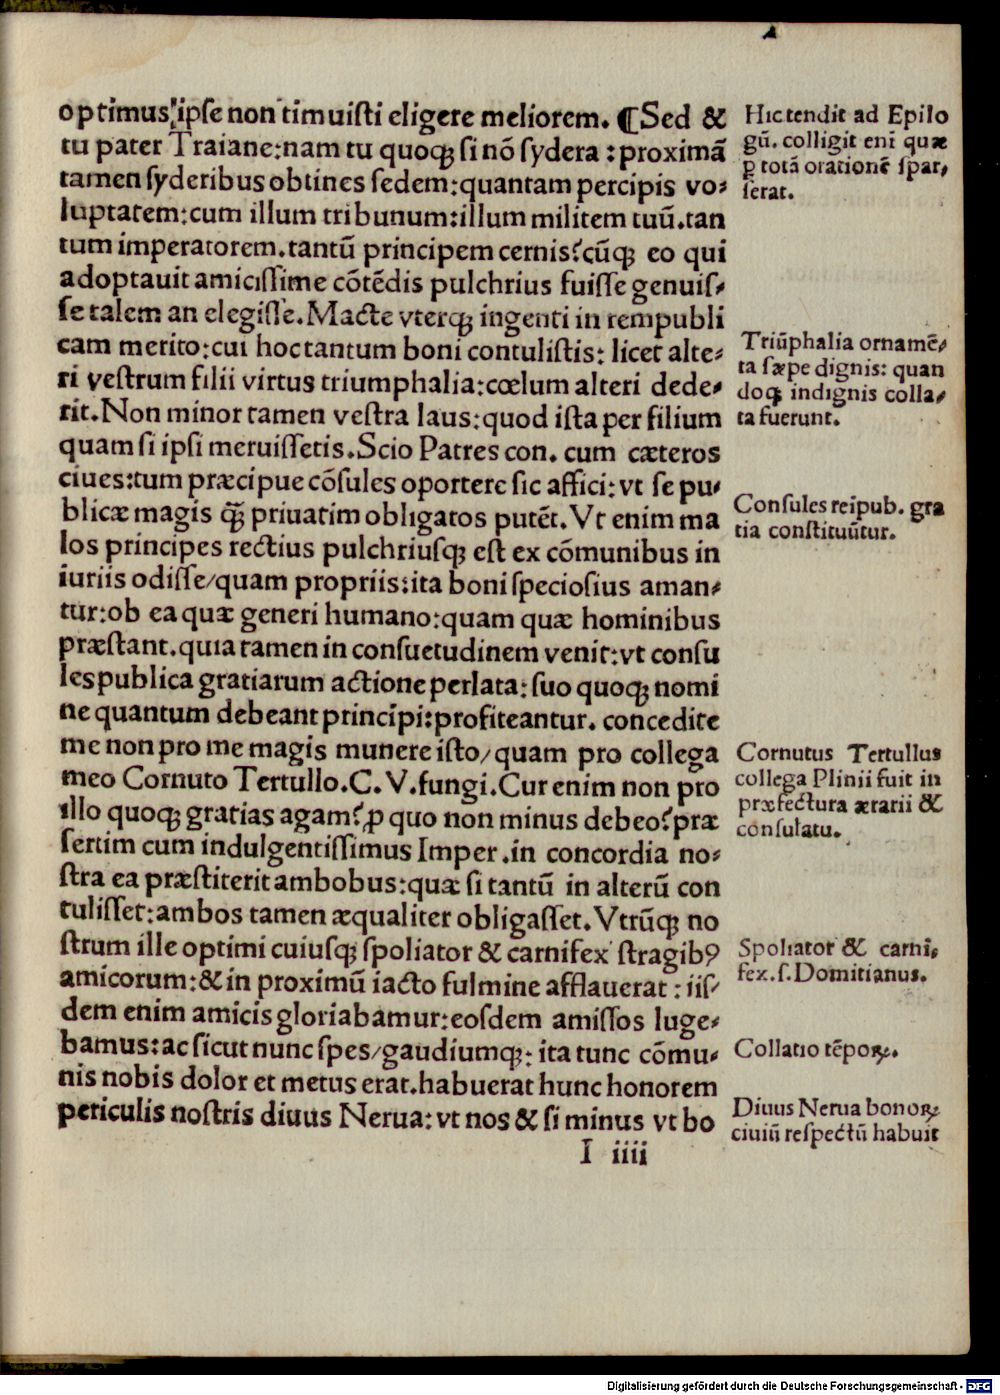 optimus, ipse non timuisti eligere meliorem. ¶ Sed &
tu pater Traiane: nam tu quoqꝫ si nō sydera: proximā
tamen syderibus obtines sedem: quantam percipis vo-
luptatem: cum illum tribunum: illum militem tuū. tan
tum imperatorem. tantū principem cernis? cūqꝫ eo qui
adoptauit amicissime cōtēdis pulchrius fuisse genuis-
se talem an elegisse. Macte vterqꝫ ingenti in rempubli
cam merito: cui hoc tantum boni contulistis: licet alte-
ri vestrum filii virtus triumphalia: cœlum alteri dede-
rit. Non minor tamen vestra laus: quod ista per filium
quam si ipsi meruissetis. Scio Patres con. cum cæteros
ciues: tum præcipue cōsules oportere sic affici: vt se pu-
blicæ magis qꝫ̃ priuatim obligatos putēt. Vt enim ma
los principes rectius pulchriusqꝫ est ex cōmunibus in
iuriis odisse/ quam propriis: ita boni speciosius aman-
tur: ob ea quæ generi humano: quam quæ hominibus
præstant. quia tamen in consuetudinem venit: vt consu
les publica gratiarum actione perlata: suo quoqꝫ nomi
ne quantum debeant principi: profiteantur. concedite
me non pro me magis munere isto/ quam pro collega
meo Cornuto Tertullo. C. V. fungi. Cur enim non pro
illo quoqꝫ gratias agam? ꝓ quo non minus debeo? præ
sertim cum indulgentissimus Imper. in concordia no-
stra ea præstiterit ambobus: quæ si tantū in alterū con
tulisset: ambos tamen æqualiter obligasset. Vtrūqꝫ no
strum ille optimi cuiusqꝫ spoliator & carnifex stragibꝰ
amicorum: & in proximū iacto fulmine afflauerat: iis-
dem enim amicis gloriabamur: eosdem amissos luge-
bamus: ac sicut nunc spes/ gaudiumqꝫ: ita tunc cōmu-
nis nobis dolor et metus erat. habuerat hunc honorem
periculis nostris diuus Nerua: vt nos & si minus vt bo
I iiii
Hic tendit ad Epilo
gū. colligit eni quæ
ꝑ totā orationē spar-
serat.
Triūphalia ornamē-
ta sæpe dignis: quan
doqꝫ indignis colla-
ta fuerunt.
Consules reipub. gra
tia constituūtur.
Cornutus Tertullus
collega Plinii fuit in
præfectura ærarii &
consulatu.
Spoliator & carni-
fex. s. Domitianus.
Collatio tēpoꝝ.
Diuus Nerua bonoꝝ
ciuiū respectū habuit
Digitalisierung gefördert durch die Deutsche Forschungsgemeinschaft - DFG